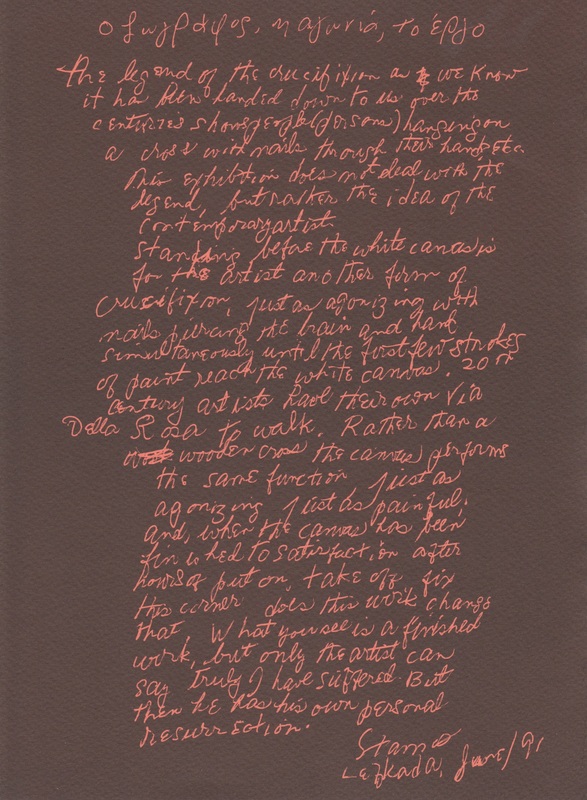 ο ζωγράφος, η αγωνία, το έργο
The legend of the crucifixion as we know
it has been handed down to us over the
centuries shows people (persons) hanging on
a cross with nails through their hands etc.
This exhibition does not deal with the
legend, but rather the idea of the
contemporary artist.
Standing before the white canvas is
for the artist another form of
crucifixion, just as agonizing with
nails piercing the brain and hand
simultaneously until the first few strokes
of paint reach the white canvas. 20th
century artists have their own Via
Della Rosa to walk. Rather than a
wooden cross the canvas performs
the same function just as
agonizing just as painful.
and, when the canvas has been
finished to satisfaction after
hours of put on, take off, fix
this corner does this work change
that What you see is a finished
work, but only the artist can
say truly I have suffered. But
then he has his own personal
resurrection.
Stamos
Lefkada, June/91